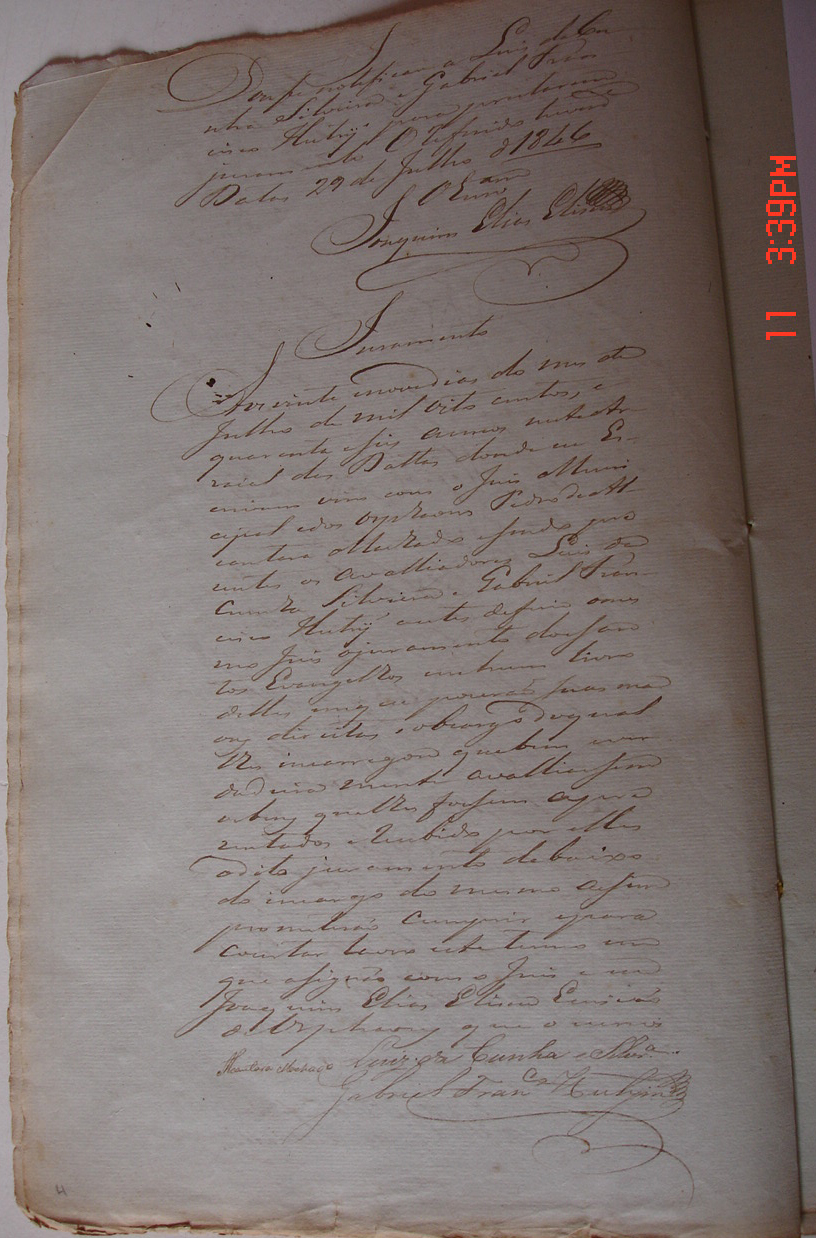 Dou fe notificar a Luis da Cu
nha Silveira e Gabriel Fran
cisco para prestarem
juramento O referido he verd.e
Pattos 29 de Julho d 1846
O Escr.am
Joaquim Elias Eliseu
Juramento
Aos vinte e nove dias do mes de
Julho de mil oito centos, e
quarenta e seis annos neste Ar
raial dos Pattos donde eu Es-
crivam vim com o Juis Muni
cipal e dos Orphaons Pedro de Al
cantara Machado e sendo pre
zentes os avalliadores Luis da
Cunha Silveira e Gabriel Fran
cisco antes deferio o mes
mo Juis o juramento dos San
tos Evangelhos em hum livro
delles em que pouzeraõ suas ma
ons direitas sobcargo do qual
lhes incarregou que bem e ver
dadeira mente avalliassem
os bens que lhes fossem apre
zentados e recebido por elles
o dito juramento debaixo
do incargo do mesmo assim
prometeraõ cumprir e para
constar lavro este termo em
que asignaõ com o Juis e eu
Joaquim Elias Eliseu Escrivaõ
de Orphaons que o escrevi
Alcantara Machado Luiz da Cunha e Silvr.a
Gabriel Fran.co
4
11 3:39PM